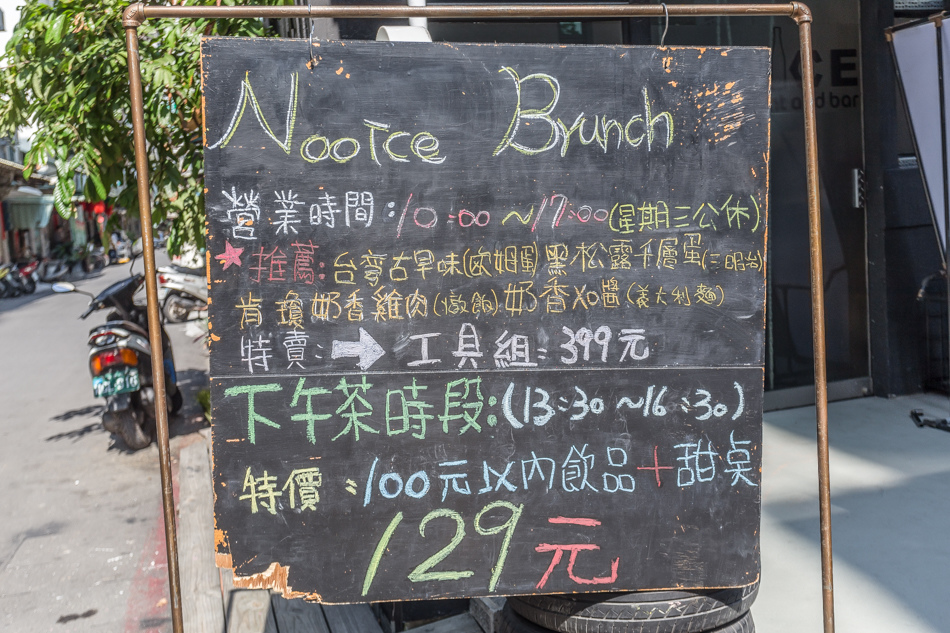 Nooice Brunch
營業時間:10:00~17:00(星期三公休)
★推薦:台灣古早味(歐姆蛋)黑松露千層蛋(三明治)
肯瓊奶香雞肉(燉飯)奶香XO醬(義大利麵)
特賣:➡工具組:399元
下午茶時段:(13:30~16:30)
特價:100元以內飲品+甜桌
129元
CE
and bar